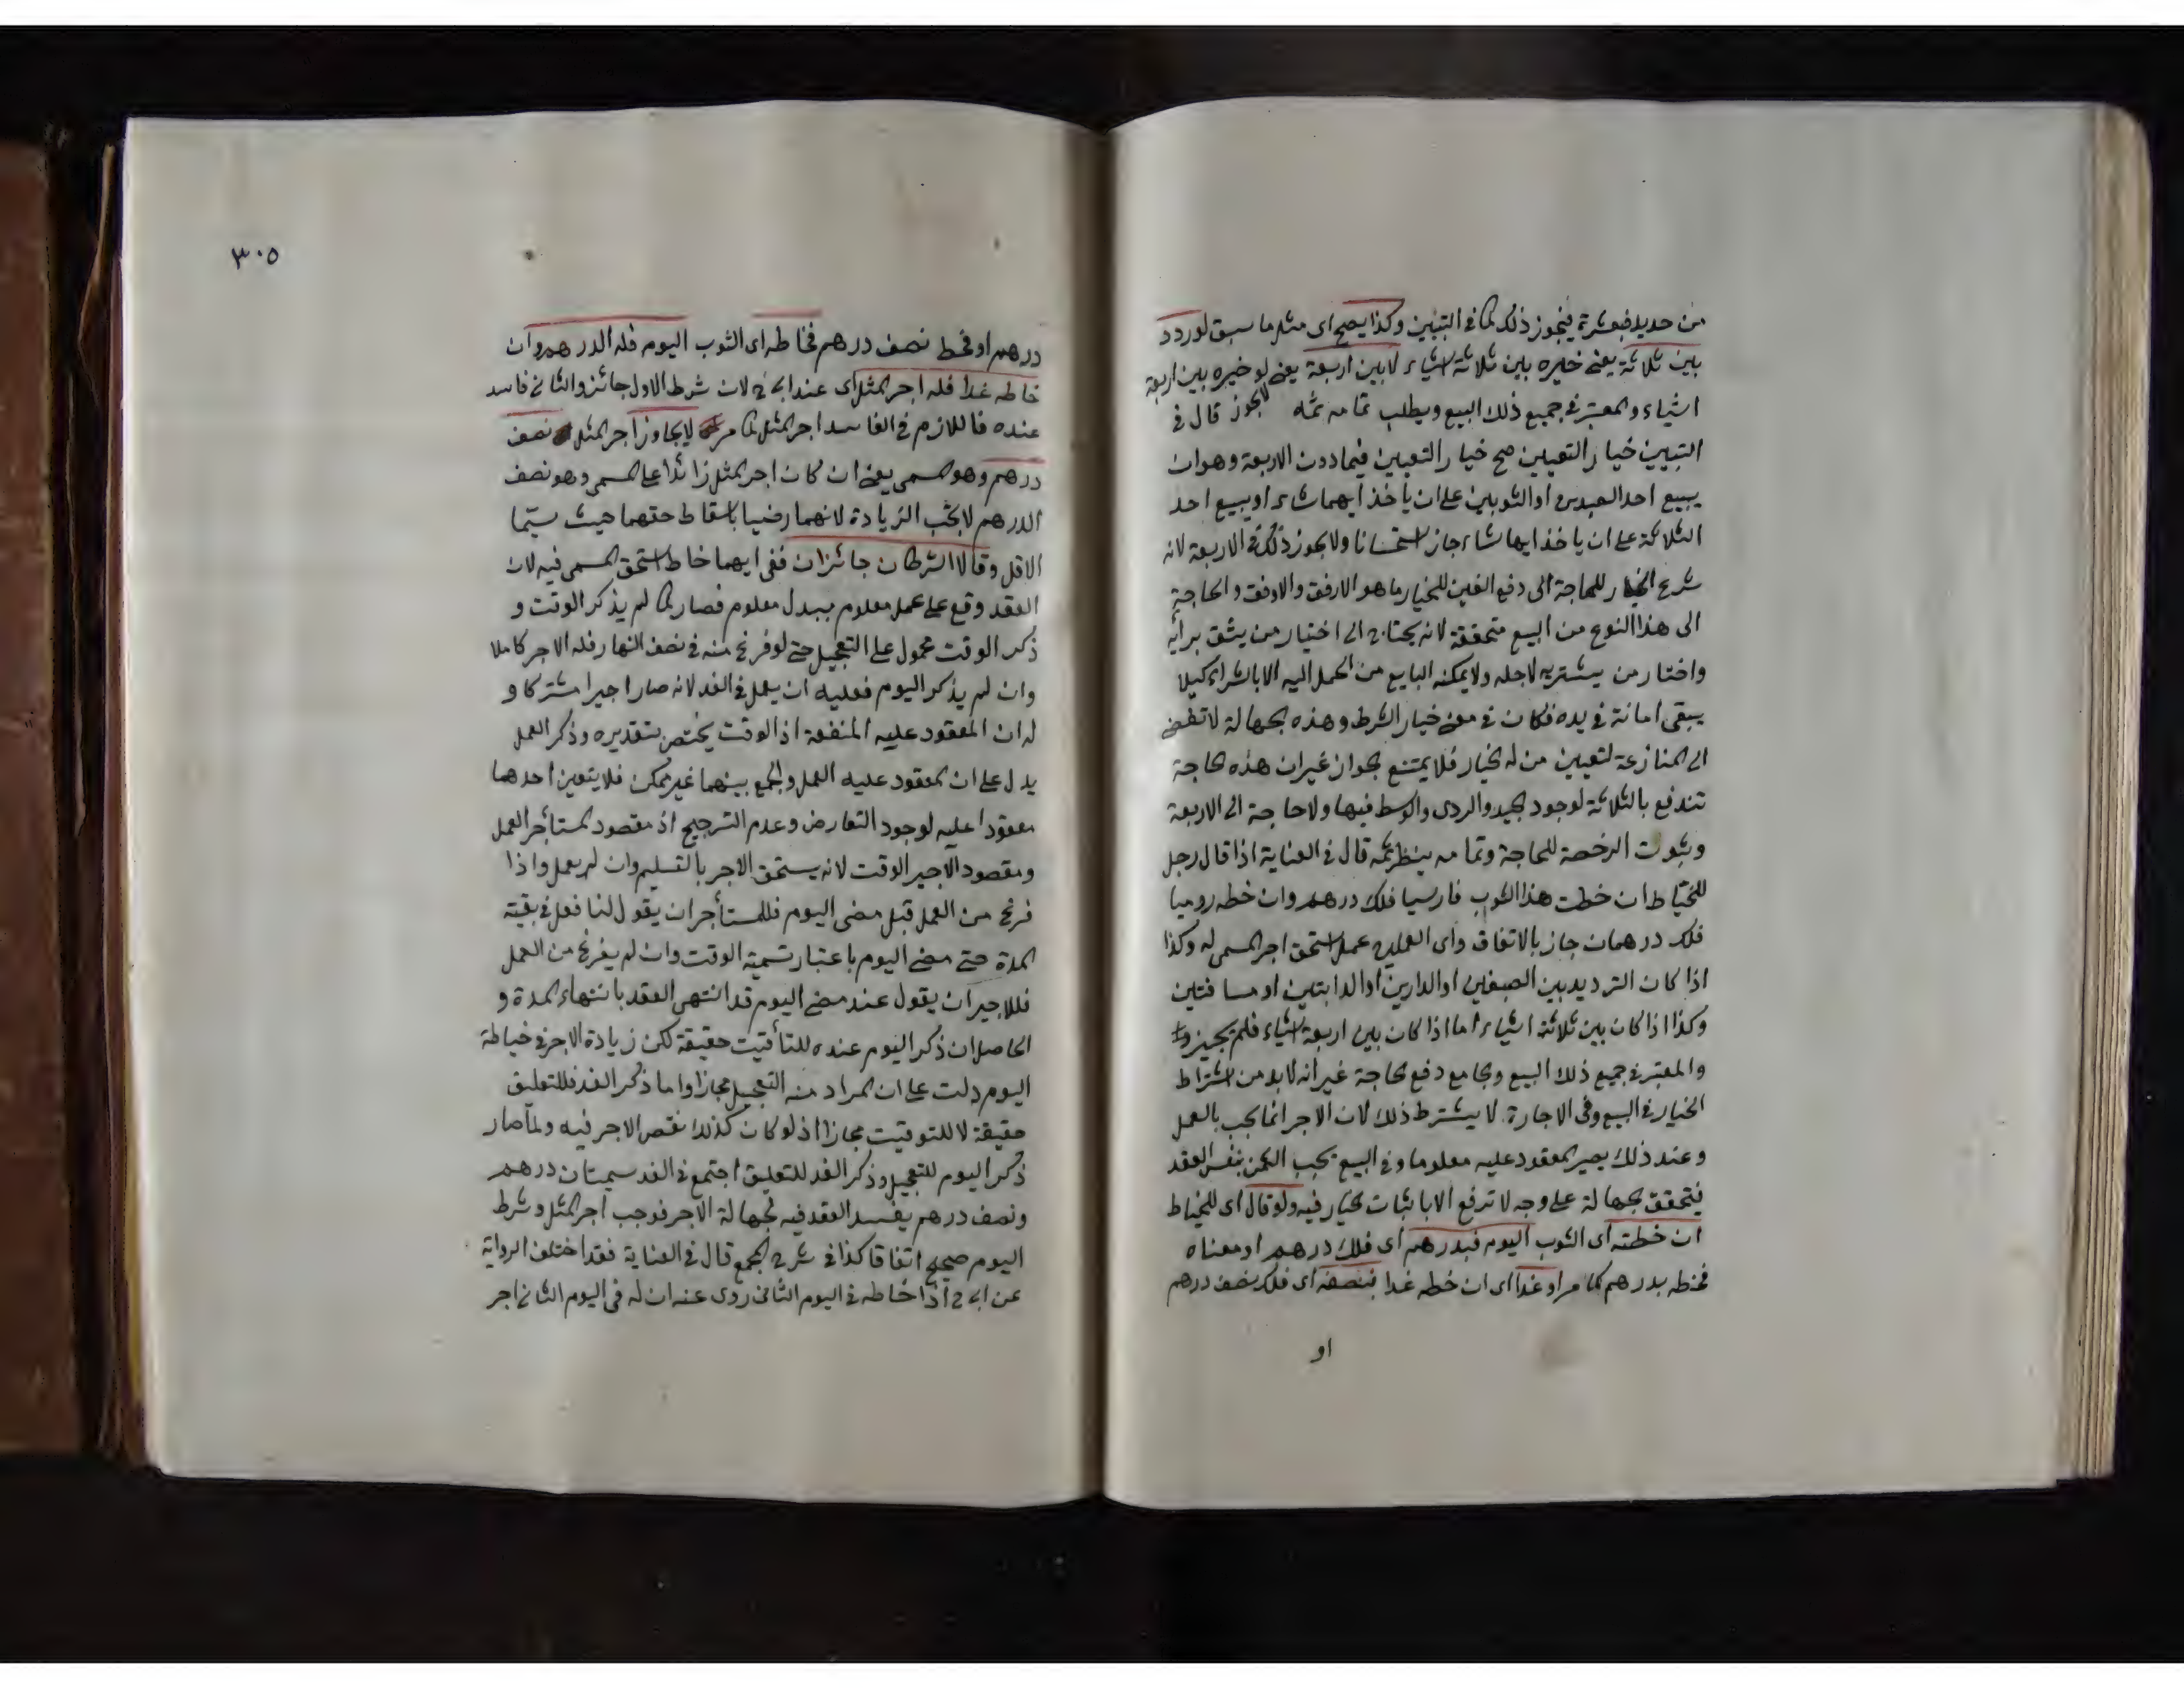 من حديد فبعشرة فيجوز ذلك كما في التبيين وكذا يصح اى مثل ما سبق لو ردد
بين ثلاثة يعنى خيره بين ثلاثة اشياء لا بين اربعة يعنى لو خيره بين اربعة
اشياء والمعتبر في جميع ذلك البيع ويطلب تمامه ثمه لا يجوز قال في
التبيين خيار التعيين صح خيار التعيين فيما دون الاربعة وهو ان
يبيع احد العبدين او الثوبين على ان ياخذ ايهما شاء او يبيع احد
الثلاثة على ان ياخذ ايها شاء جاز استحسانا ولا يجوز ذلك في الاربعة لانه
شرع الخيار للحاجة الى دفع الغبن للخيار ما هو الارفق والاوفق والحاجة
الى هذا النوع من البيع متحققة لانه يحتاج الى اختيار من يثق برأيه
واختار من يشتريه لاجله ولا يمكنه البايع من الحمل اليه الا بالشراء كيلا
يبقى امانة في يده فكان في معنى خيار الشرط وهذه الجهالة لا تفضى
الى المنازعة لتعيين من له الخيار فلا يمتنع الجواز غير ان هذه الحاجة
تندفع بالثلاثة لوجود الجيد والردى والوسط فيها ولا حاجة الى الاربعة
وثبوت الرخصة للحاجة وتمامه ينظر ثمه قال في العناية اذا قال رجل
للخياط ان خطت هذا الثوب فارسيا فلك درهم وان خطه روميا
فلك درهمان جاز بالاتفاق واى العملين عمل استحق اجر المسمى له وكذا
اذا كان الترديد بين الصبغين او الدارين او الدابتين او مسافتين
وكذا اذا كان بين ثلاثة اشياء اما اذا كان بين اربعة اشياء فلم يجيزوا
والمعتبر في جميع ذلك البيع وبجامع دفع الحاجة غير انه لا بد من اشتراط
الخيار في البيع وفى الاجارة لا يشترط ذلك لان الاجر انما يجب بالعمل
وعند ذلك يصير المعقود عليه معلوما وفى البيع يجب الثمن بنفس العقد
فيتحقق الجهالة على وجه لا ترفع الا باثبات الخيار فيه ولو قال اى للخياط
ان خطته اى الثوب اليوم فبدرهم اى فلك درهم او معناه
فخطه بدرهم كما مر او غدا اى ان خطه غدا فبنصفه اى فلك نصف درهم
او
٣٠٥
درهم او فخط نصف درهم فخاطه اى الثوب اليوم فله الدرهم وان
خاطه غدا فله اجر المثل اى عند ابى ح لان شرط الاول جائز والثانى فاسد
عنده فاللازم في الفاسد اجر المثل كما مر لا يجاوز اجر المثل نصف
درهم وهو المسمى يعنى ان كان اجر المثل زائدا على المسمى وهو نصف
الدرهم لا يجب الزيادة لانهما رضيا باسقاط حقهما حيث سميا
الاقل وقالا الشرطان جائزان ففى ايهما خاط استحق المسمى فيه لان
العقد وقع على عمل معلوم ببدل معلوم فصار كما لم يذكر الوقت و
ذكر الوقت محمول على التعجيل حتى لو فرغ منه في نصف النهار فله الاجر كاملا
وان لم يذكر اليوم فعليه ان يعمل في الغد لانه صار اجيرا مشتركا و
له ان المعقود عليه المنفعة اذ الوقت يختص بتقديره وذكر العمل
يدل على ان المعقود عليه العمل والجمع بينهما غير ممكن فلا يتعين احدهما
معقودا عليه لوجود التعارض وعدم الترجيح اذ مقصود المستأجر العمل
ومقصود الاجير الوقت لانه يستحق الاجر بالتسليم وان لم يعمل واذا
فرغ من العمل قبل مضى اليوم فللمستأجر ان يقول لنا فعل في بقية
المدة حتى مضى اليوم باعتبار تسمية الوقت وان لم يفرغ من العمل
فللاجير ان يقول عند مضى اليوم قد انتهى العقد بانتهاء المدة و
الحاصل ان ذكر اليوم عنده للتأقيت حقيقة لكن زيادة الاجر في خياطة
اليوم دلت على ان المراد منه التعجيل مجازا واما ذكر الغد فللتعليق
حقيقة لا للتوقيت مجازا اذ لو كان كذلك نقص الاجر فيه ولما صار
ذكر اليوم للتعجيل وذكر الغد للتعليق اجتمع في الغد تسميتان درهم
ونصف درهم يفسد العقد فيه لجهالة الاجر فوجب اجر المثل وشرط
اليوم صحيح اتفاقا كذا في شرح المجمع قال في العناية فقد اختلف الرواية
عن ابى ح اذا خاطه في اليوم الثانى روى عنه ان له فى اليوم الثانى اجر